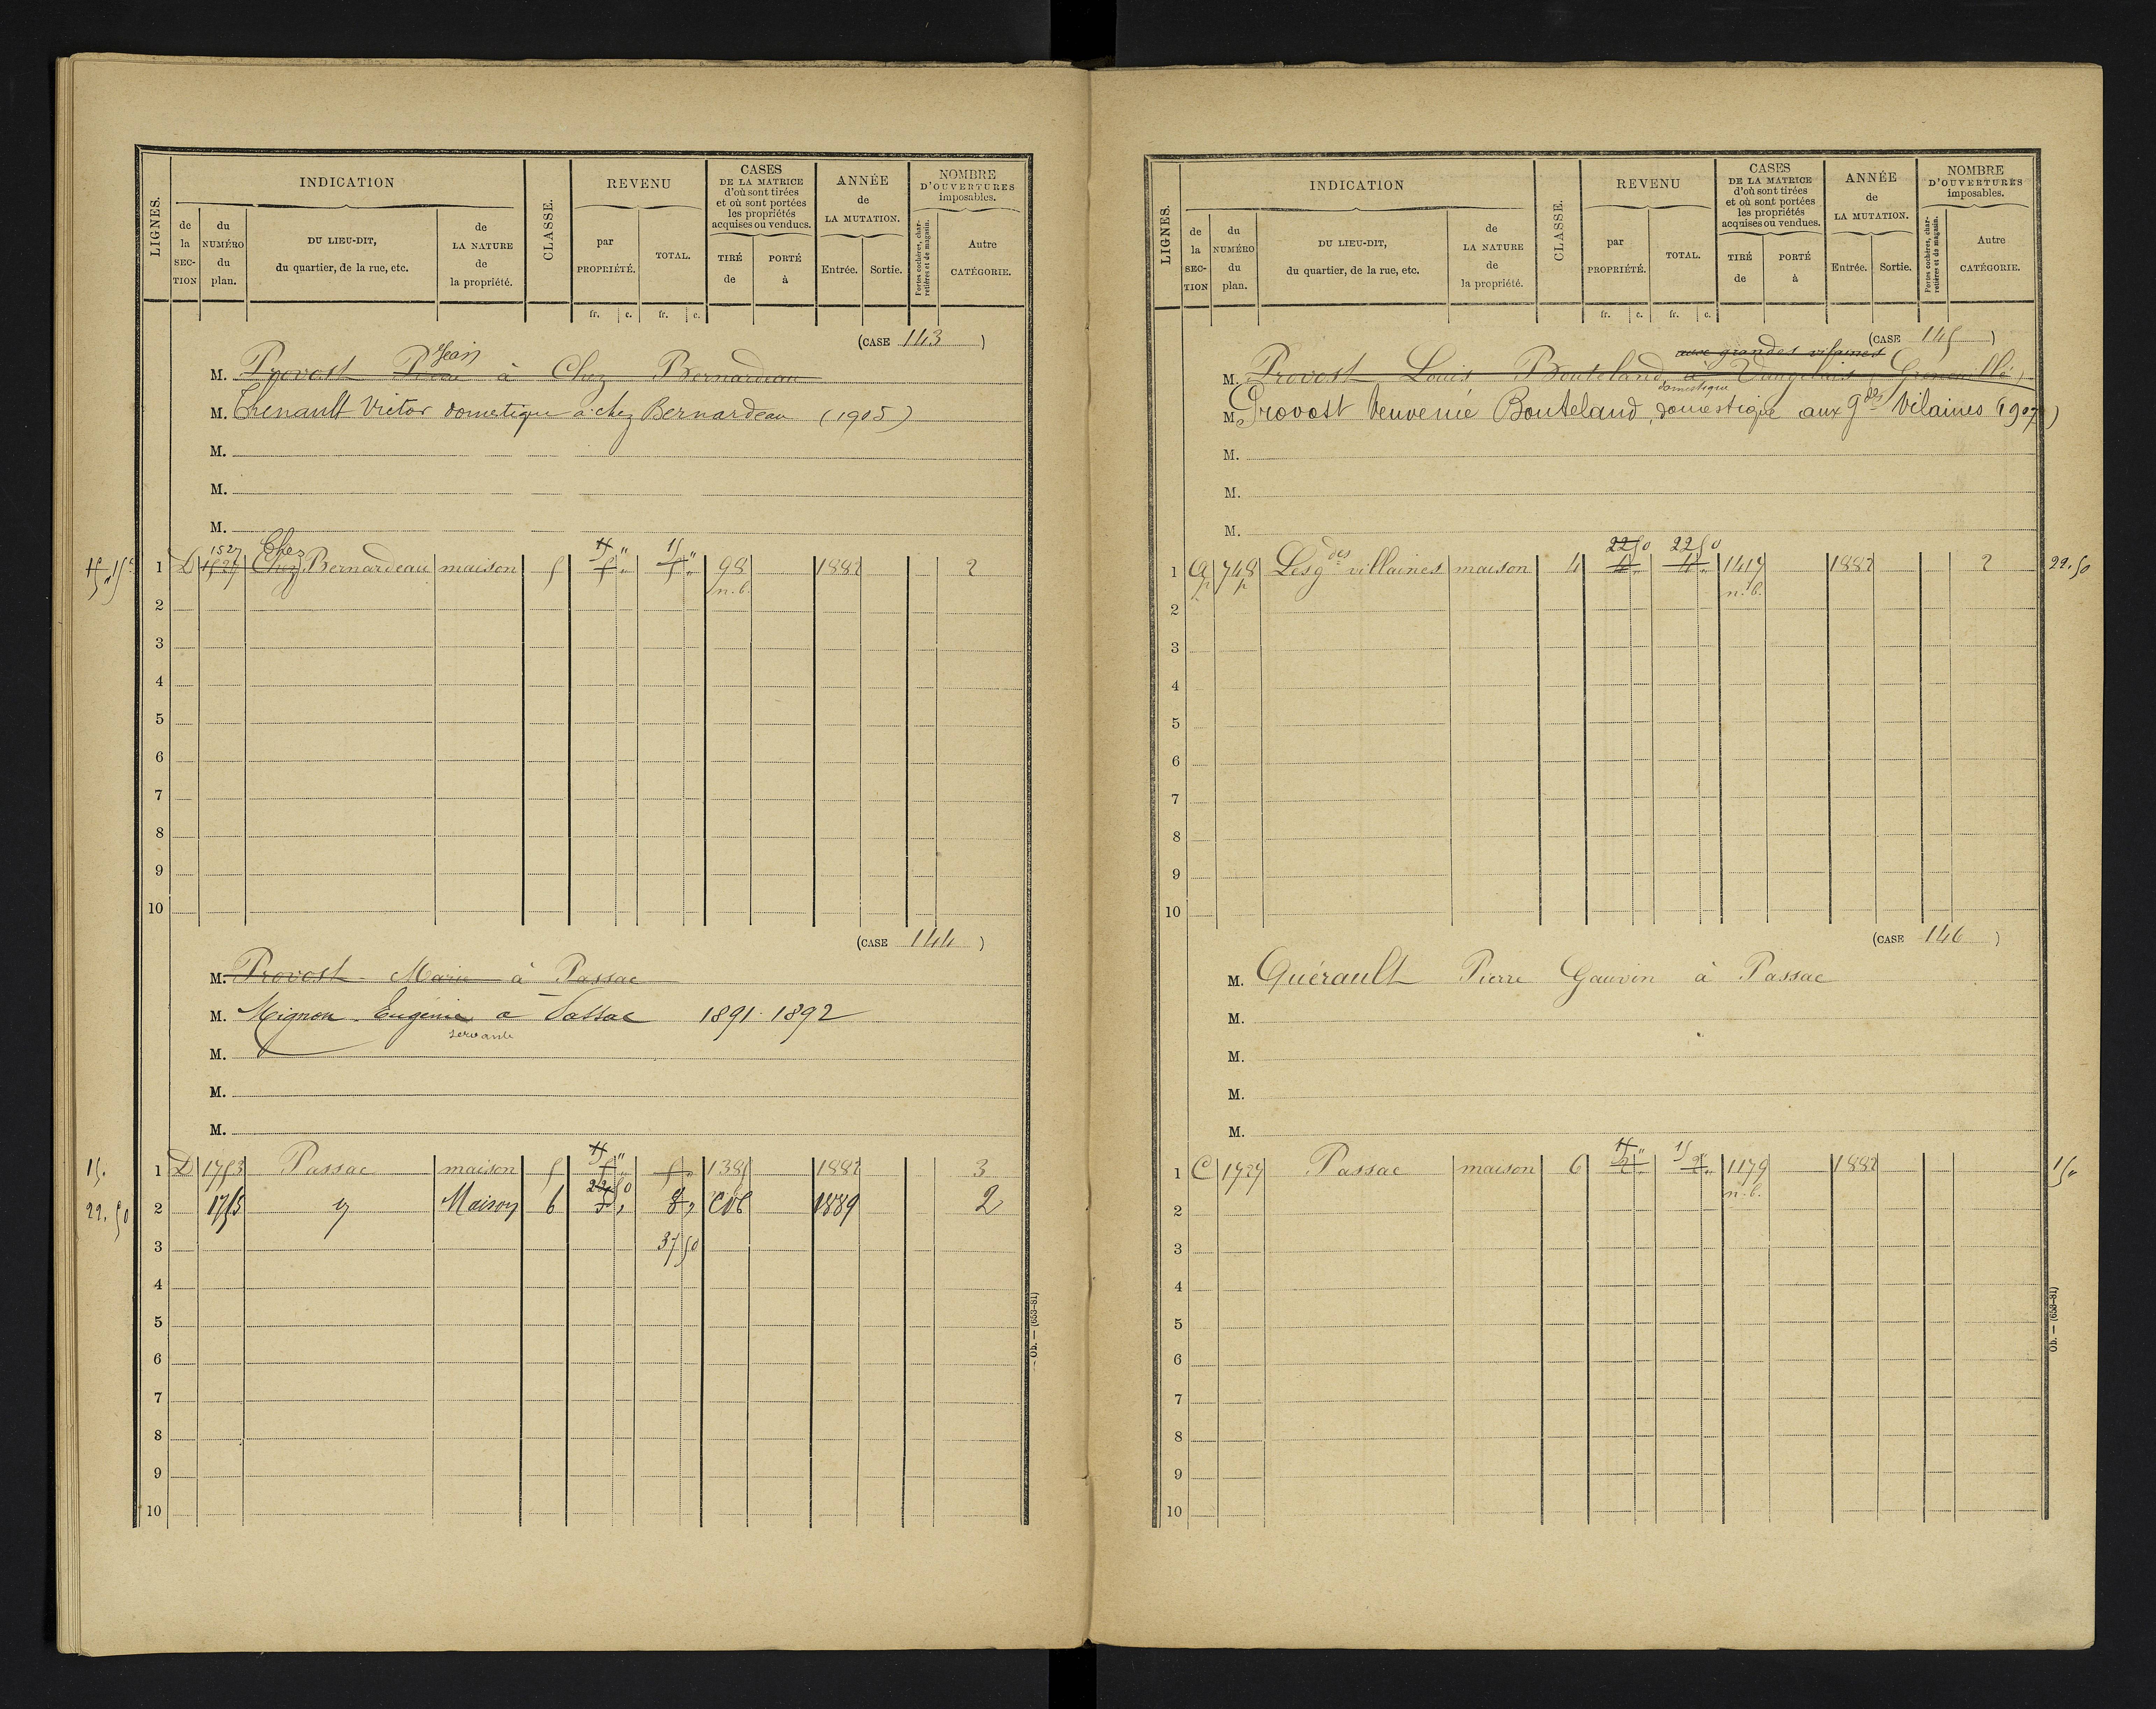 LIGNES.
INDICATION
de la SECTION
du NUMÉRO du plan.
DU LIEU-DIT, du quartier, de la rue, etc.
de LA NATURE de la propriété.
CLASSE.
REVENU
par PROPRIÉTÉ.
TOTAL.
fr. c. fr. c.
CASES DE LA MATRICE d'où sont tirées et où sont portées les propriétés acquises ou vendues.
TIRÉ de
PORTÉ à
ANNÉE de LA MUTATION.
Entrée. Sortie.
NOMBRE D'OUVERTURES imposables.
Portes cochères, charretières et de magasin.
Autre CATÉGORIE.
(CASE 143)
Jean
M. Provost à Chez Bernardeau
M. Chenault Victor domestique à chez Bernardeau (1905)
M.
M.
M.
1527 Chez 15 " 15 "
1 D 1527 Chez Bernardeau maison 5 5 " 5 " 98 1882 2
n.b.
2
3
4
5
6
7
8
9
10
(CASE 144)
M. Provost Marie à Passac
M. Mignon Eugénie à Passac 1891-1892
servante
M.
M.
M.
15 "
15. 1 D 1753 Passac maison 5 5 " 5 " 1385 1882 3
22 50
22.50 2 1753 Maison 6 3 " 8 " 1889 2
3 37 50
4
5
6
7
8
9
10
Ob. — (653-81)
LIGNES.
INDICATION
de la SECTION
du NUMÉRO du plan.
DU LIEU-DIT, du quartier, de la rue, etc.
de LA NATURE de la propriété.
CLASSE.
REVENU
par PROPRIÉTÉ.
TOTAL.
fr. c. fr. c.
CASES DE LA MATRICE d'où sont tirées et où sont portées les propriétés acquises ou vendues.
TIRÉ de
PORTÉ à
ANNÉE de LA MUTATION.
Entrée. Sortie.
NOMBRE D'OUVERTURES imposables.
Portes cochères, charretières et de magasin.
Autre CATÉGORIE.
(CASE 145)
aux grandes vilaines
M. Provost Louis Bouteland à
domestique
M. Provost veuve née Bouteland, domestique aux gdes Vilaines (1907)
M.
M.
M.
22 50 22 50
1 a 748 Les gdes villaines maison 4 4 " 4 " 1417 1882 2 22.50
p p n.b.
2
3
4
5
6
7
8
9
10
(CASE 146)
M. Quérault Pierre Gauvin à Passac
M.
M.
M.
M.
15 " 15 "
1 C 1727 Passac maison 6 2 " 2 " 1179 1882 15"
n.b.
2
3
4
5
6
7
8
9
10
Ob. — (653-81)